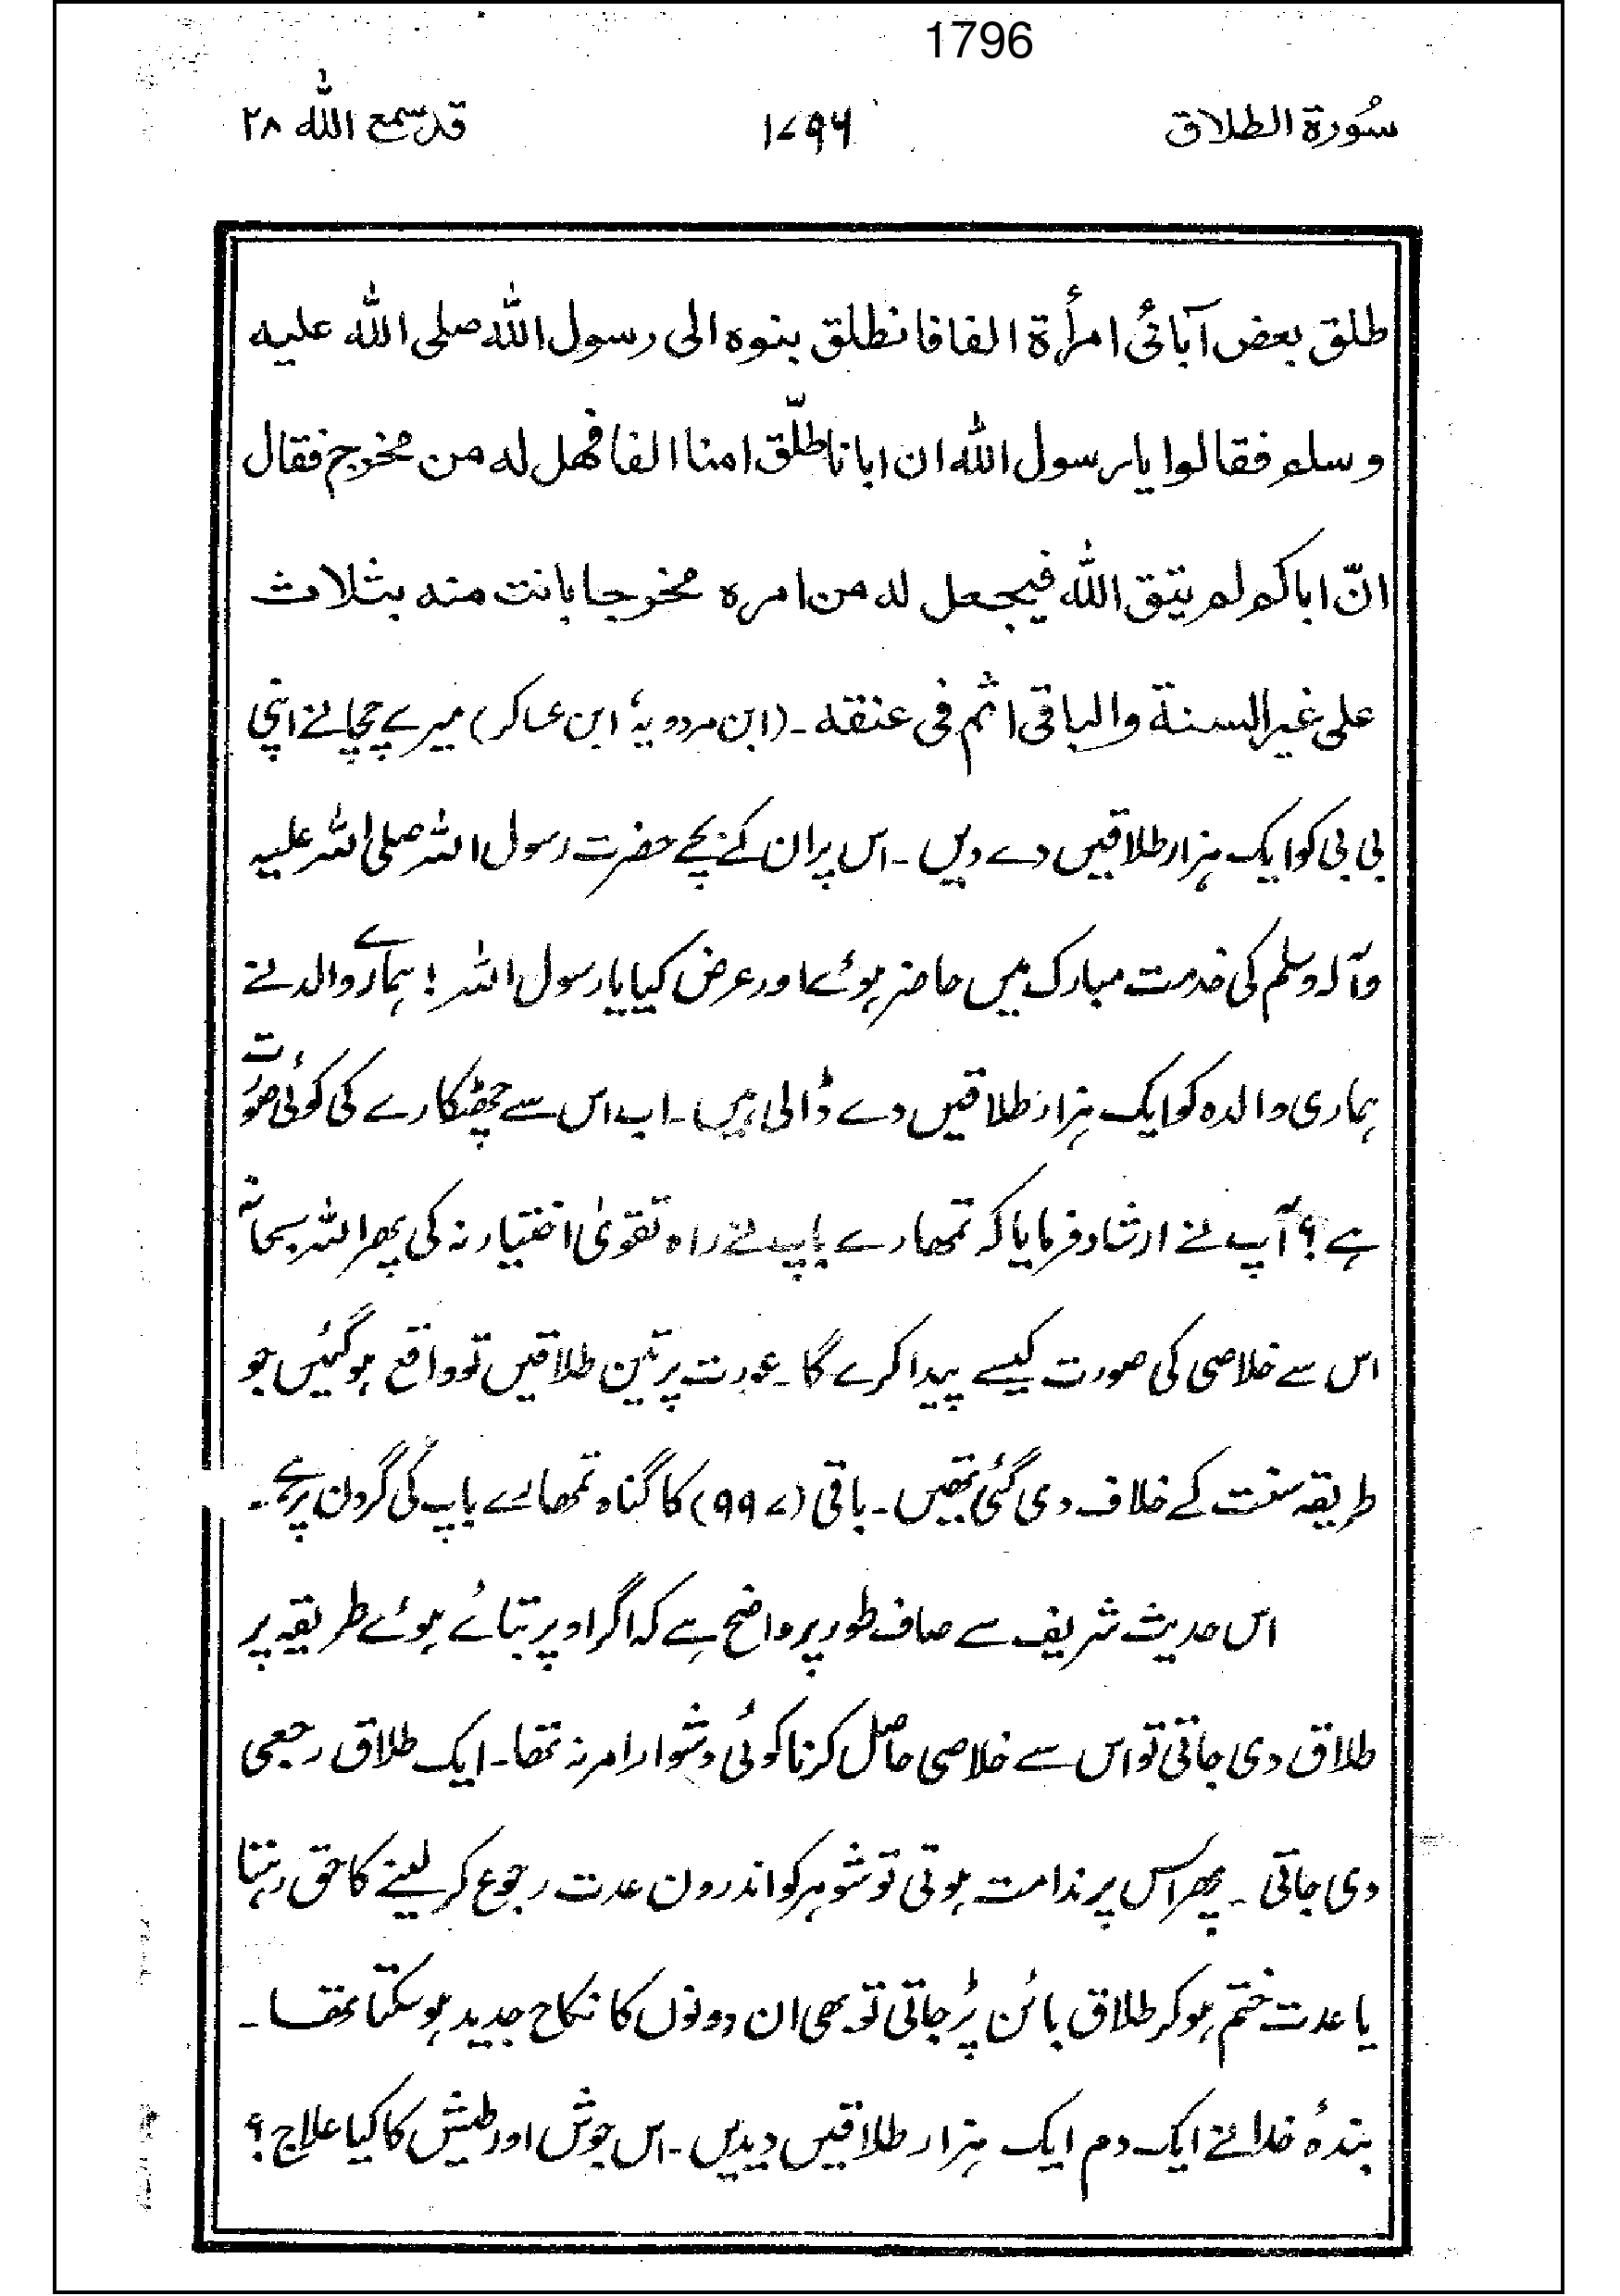 1796
سُورة الطلاق ۱۷۹۶ قد سمع الله ۲۸
طلق بعض آبائی امرأة الفا فانطلق بنوه الی رسول الله صلی الله علیه
وسلم فقالوا یا رسول الله ان ابانا طلّق امنا الفا فهل له من مخرج فقال
انّ اباکم لم یتق الله فیجعل له من امره مخرجا بانت منه بثلاث
علی غیر السنة والباقی اثم فی عنقه ۔ (ابن مردویہ، ابن عساکر) میرے چچا نے اپنی
بی بی کو ایک ہزار طلاقیں دے دیں ۔ اس پر ان کے بچے حضرت رسول اللہ صلی اللہ علیہ
وآلہ وسلم کی خدمت مبارک میں حاضر ہوئے اور عرض کیا یا رسول اللہ ! ہمارے والد نے
ہماری والدہ کو ایک ہزار طلاقیں دے ڈالی ہیں ۔ اب اس سے چھٹکارے کی کوئی صورت
ہے ؟ آپ نے ارشاد فرمایا کہ تمھارے باپ نے راہ تقویٰ اختیار نہ کی پھر اللہ سبحانہ
اس سے خلاصی کی صورت کیسے پیدا کرے گا ۔ عورت پر تین طلاقیں تو واقع ہو گئیں جو
طریقہ سنت کے خلاف دی گئی تھیں ۔ باقی (۹۹۷) کا گناہ تمھارے باپ کی گردن پر ہے ۔
اس حدیث شریف سے صاف طور پر واضح ہے کہ اگر اوپر بتائے ہوئے طریقہ پر
طلاق دی جاتی تو اس سے خلاصی حاصل کرنا کوئی دشوار امر نہ تھا ۔ ایک طلاق رجعی
دی جاتی ۔ پھر اس پر ندامت ہوتی تو شوہر کو اندرون عدت رجوع کر لینے کا حق رہتا
یا عدت ختم ہو کر طلاق بائن پڑ جاتی تو بھی ان دونوں کا نکاح جدید ہو سکتا تھا ۔
بندۂ خدا نے ایک دم ایک ہزار طلاقیں دیدیں ۔ اس جوش اور طیش کا کیا علاج ؟